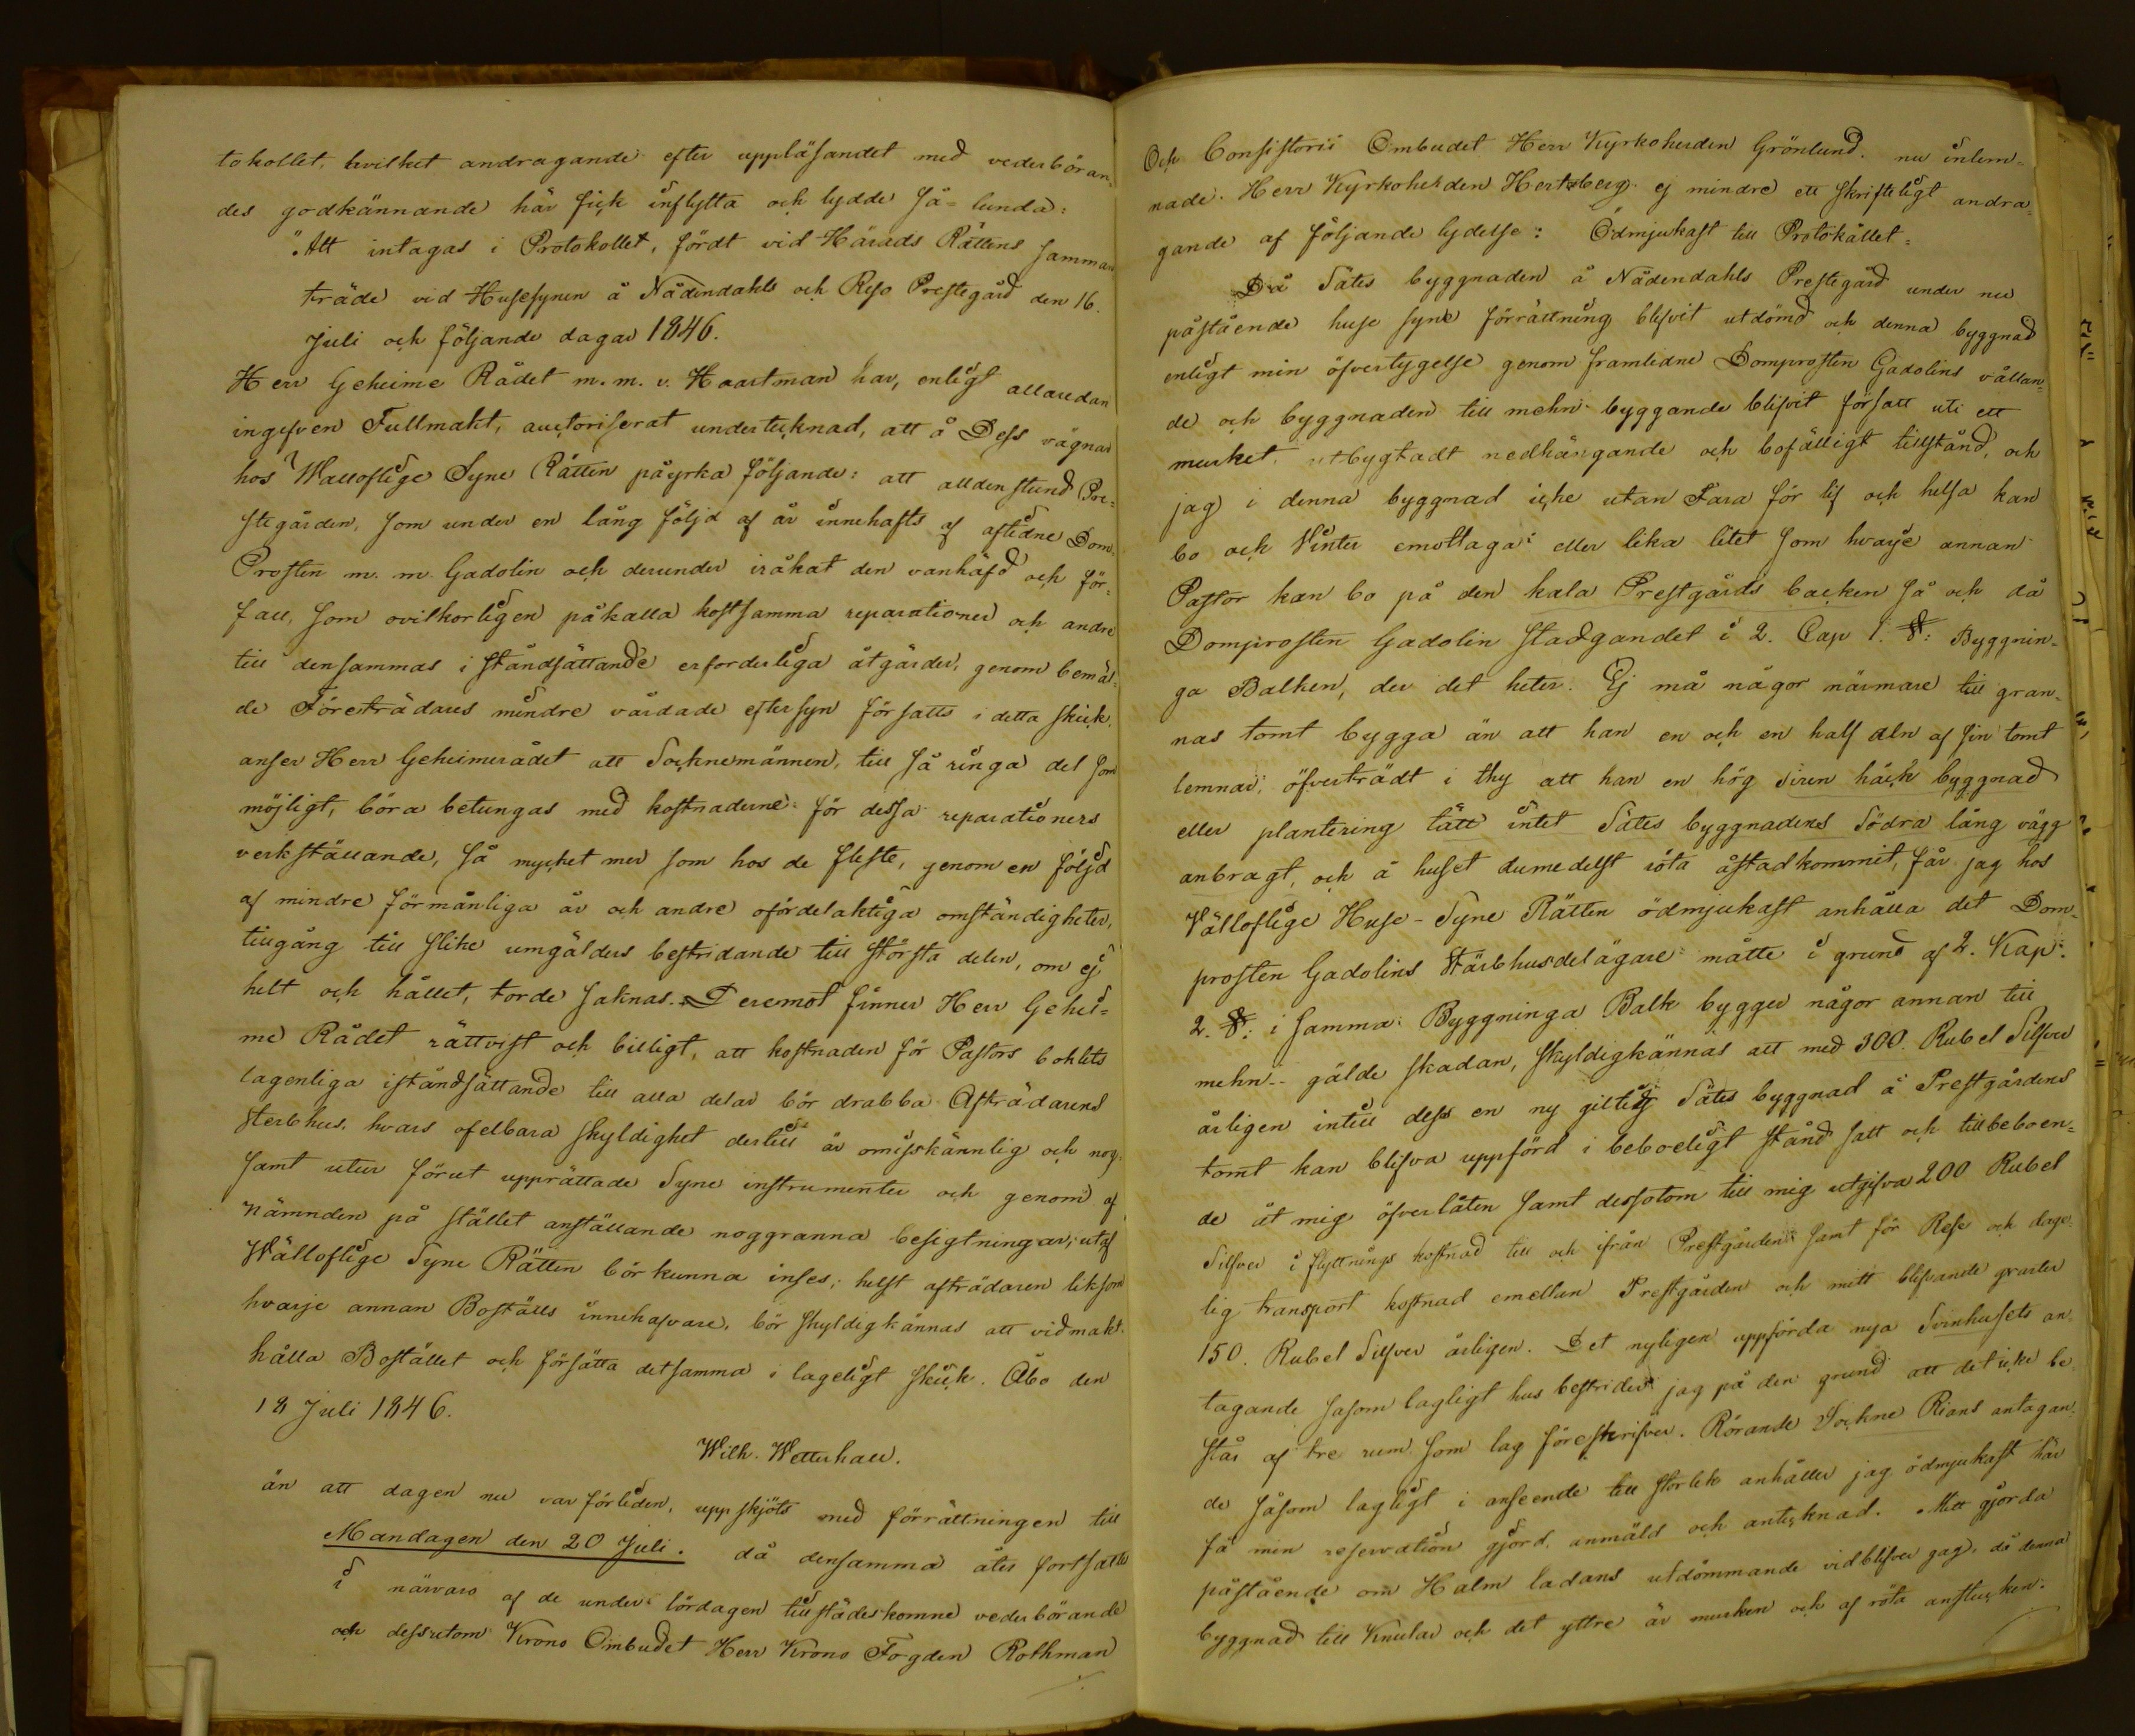 tokollet, hvilket andragande efter uppläsandet med vederböran-
des godkännande här fick inflytta och lydde så-lunda:
"Att intagas i Protokollet, fördt vid Härads Rättens samman
träde vid Husesynen å Nådendahls och Reso Prestegård den 16.
Juli och följande dagar 1846.
Herr Geheime Rådet m. m. v. Haartman har, enligt allaredan
ingifven Fullmakt, auctoriserat undertecknad, att å Dess vägnar
hos Wälloflige Syne Rätten påyrka följande: att alldenstund Pre-
stegården, som under en lång följd af år innehafts af aflidne Dom
Prosten m. m. Gadolin och derunder iråkat den vanhäfd och för-
fall, som ovilkorligen påkalla kostsamma reparationer och andre
till densammas i ståndsättande erforderliga åtgärder, genom bemäl-
de Företrädares mindre vårdade eftersyn försatts i detta skick,
anser Herr Geheimerådet att Socknemännen, till så ringa del som
möjligt, böra betungas med kostnaderne för dessa reparationers
verkställande, så mycket mer som hos de fleste, genom en följd
af mindre förmånliga år och andre ofördelaktiga omständigheter,
tillgång till slike umgälders bestridande till största delen, om ej
helt och hållet, torde saknas. Deremot finner Herr Gehei-
me Rådet rättvist och billigt, att kostnaden för Pastors bohlets
lagenliga iståndsättande till alla delar bör drabba Afträdarens
Sterbhus, hvars ofelbara skyldighet dertill är omisskännlig och nog
samt utur förut upprättade Syne instrumenter och genom af
Nämnden på stället anställande noggranna besigtningar, utaf
Wälloflige Syne Rätten bör kunna inses; helst afträdaren liksom
hvarje annan Boställs innehafvare, bör skyldigkännas att vidmakt-
hålla Bostället och försätta detsamma i lageligt skick. Åbo den
18 Juli 1846.
Wilh. Wetterhall.
än att dagen nu var förliden, uppskjöts med förrättningen till
Mandagen den 20 Juli. då densamma åter fortsattes
i närvaro af de under lördagen tillstädeskomne vederbörande
och dessutom Krono Ombudet Herr Krono Fogden Rothman
Och Consistorii Ombudet Herr Kyrkoherden Grönlund. nu inlem-
nade Herr Kyrkoherden Hertzberg ej mindre ett skrifteligt andra-
gande af följande lydelse: Ödmjukast till Protokållet =
Då Sätes byggnaden å Nådendahls Prestegård under nu
påstående huse syne förrättning blifvit utdömd och denna byggnad
enligt min öfvertygelse genom framlidne Domprosten Gadolins vållan-
de och byggnaden till mehn byggande blifvit försatt uti ett
murket, utbygtadt nedhängande och bofälligt tillstånd, och
jag i denna byggnad icke utan Fara för lif och helsa kan
bo och Vinter emottaga eller lika litet som hvarje annan
Pastor kan bo på den kala Prestgårds backen så och då
Domprosten Gadolin stadgandet i 2. Cap 1. §: Byggnin-
ga Balken, der det heter. Ej må någor närmare till gran-
nas tomt bygga än att han en och en half aln af sin tomt
lemnar; öfverträdt i thy att han en hög siren häck byggnad
eller plantering tätt intet Sätes byggnadens Södra lång vägg
anbragt, och å huset dymedelst röta åstadkommit, får jag hos
Välloflige Huse-Syne Rätten ödmjukast anhålla det Dom-
prosten Gadolins Stärbhusdelägare måtte i grund af 2. Kap:
2. §: i samma Byggninga Balk bygger någor annan till
mehn -- gälde skadan, skyldigkännas att med 300. Rubel Silfver
årligen intill dess en ny giltig Sätes byggnad å Prestgårdens
tomt kan blifva uppförd i beboeligt stånd satt och till beboen-
de åt mig öfverlåten samt dessutom till mig utgifva 200 Rubel
Silfver i flyttnings kostnad till och ifrån Prestgården samt för Rese och dage-
lig transport kostnad emellan Prestgården och mitt blifvande qvarter
150. Rubel Silfver årligen. Det nyligen uppförda nya Svinhusets an-
tagande såsom lagligt hus bestrider jag på den grund att det icke be
står af tre rum som lag föreskrifver. Rörande Sockne Rians antagan-
de såsom lagligt i anseende till storlek anhåller jag ödmjukast här
få min reservation gjord, anmäld och antecknad. Mitt gjorda
påstående om Halm ladans utdömmande vidblifver jag, då denna
byggnad till Knutar och det yttre är murken och af röta anstucken.